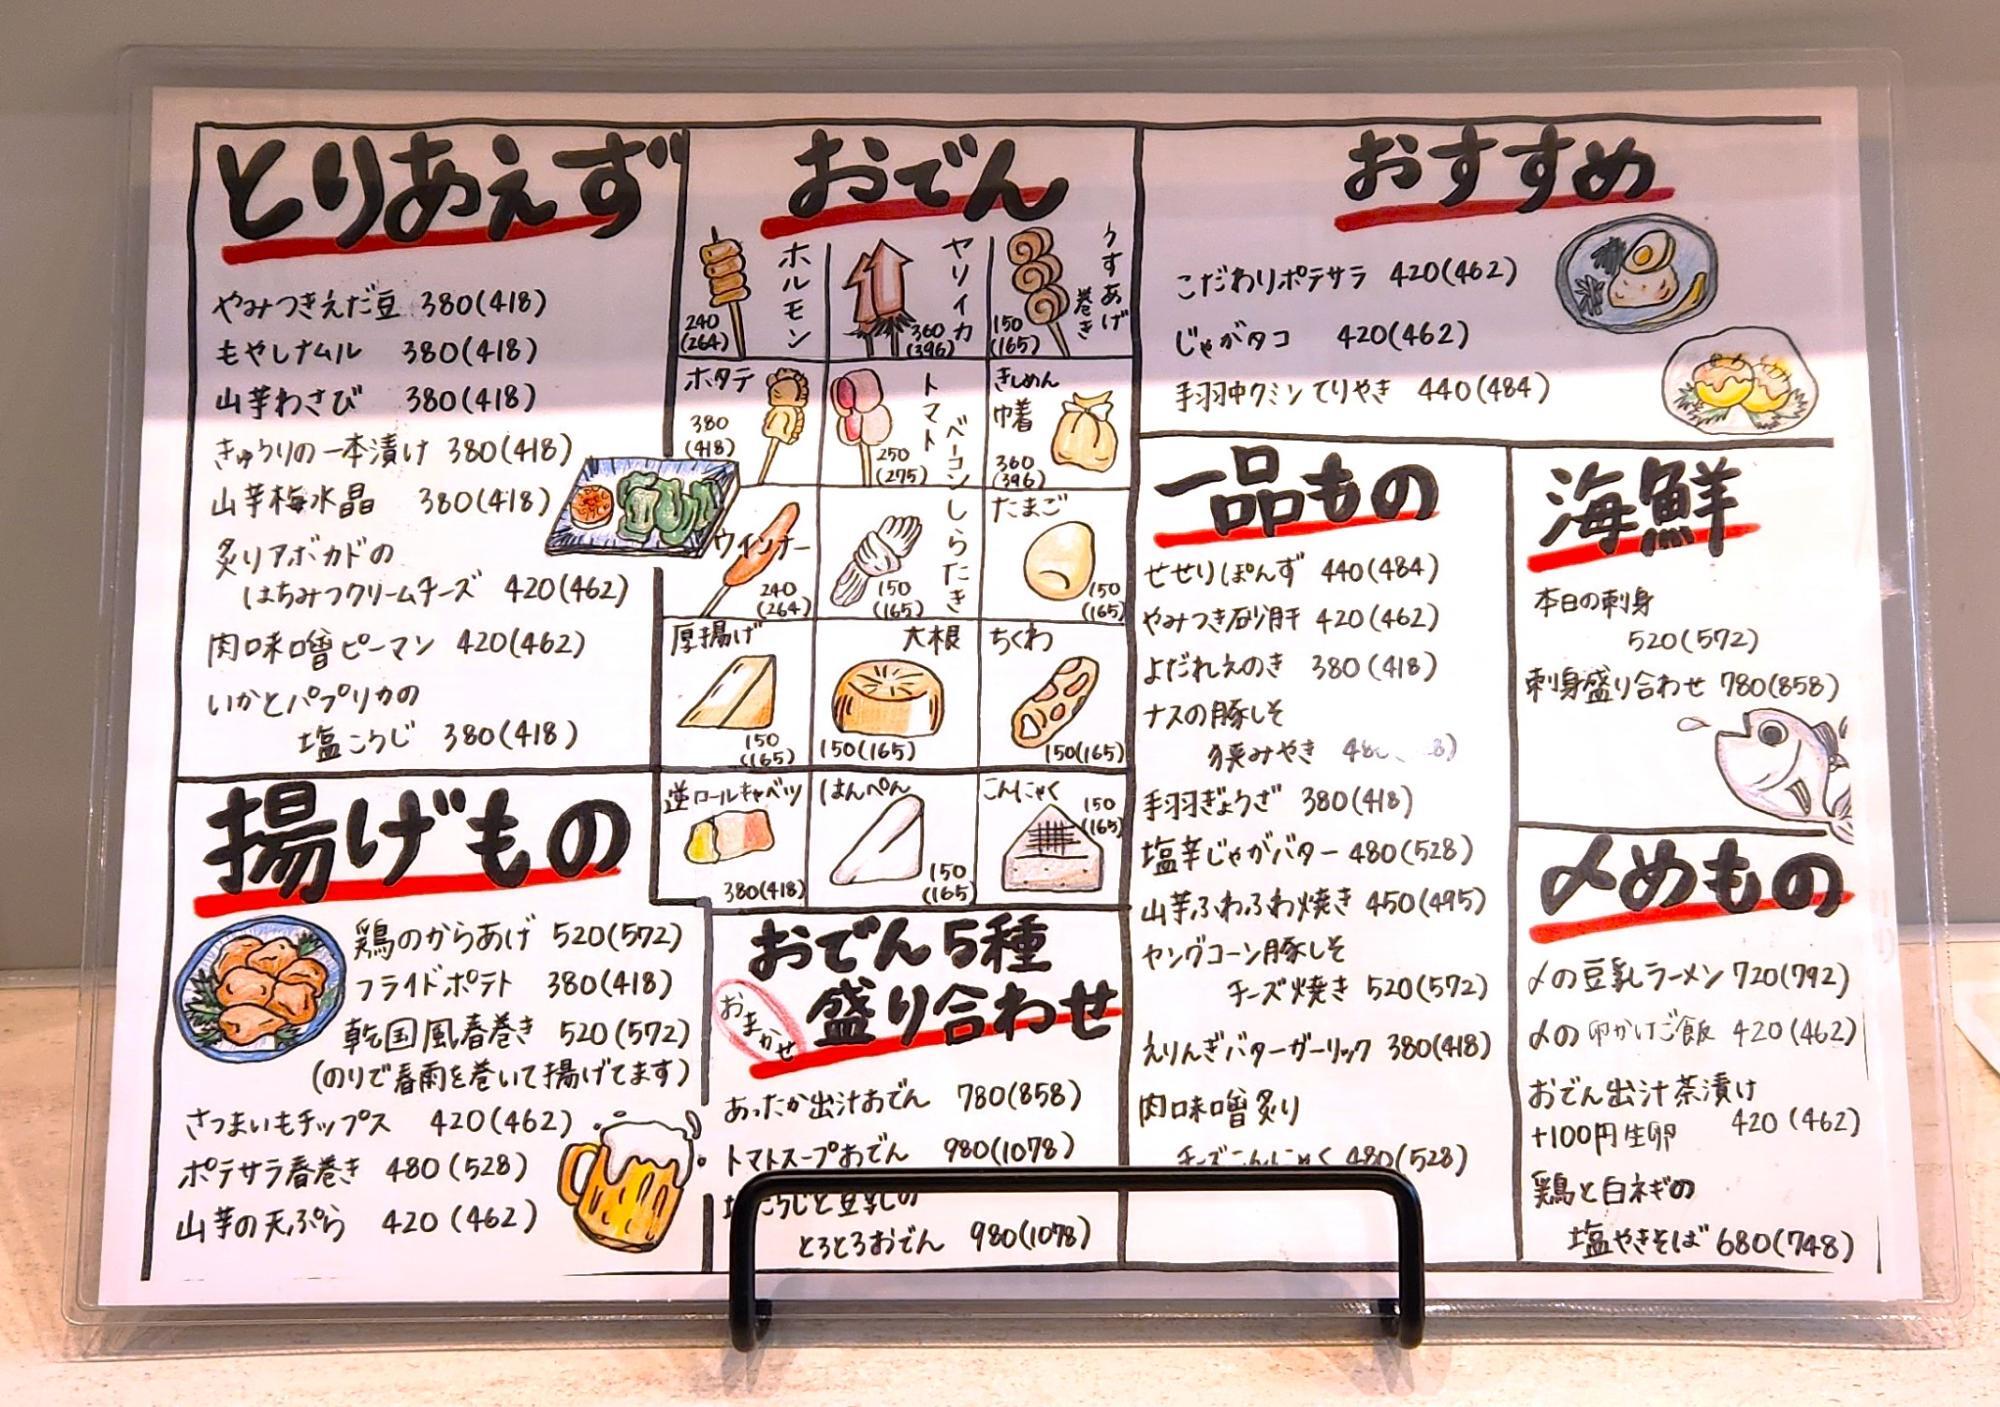 とりあえず
やみつきえだ豆 380(418)
もやしナムル 380(418)
山芋わさび 380(418)
きゅうりの一本漬け 380(418)
山芋梅水晶 380(418)
炙りアボカドの
はちみつクリームチーズ 420(462)
肉味噌ピーマン 420(462)
いかとパプリカの
塩こうじ 380(418)
揚げもの
鶏のからあげ 520(572)
フライドポテト 380(418)
韓国風春巻き 520(572)
(のりで春雨を巻いて揚げてます)
さつまいもチップス 420(462)
ポテサラ春巻き 480(528)
山芋の天ぷら 420(462)
おでん
ホルモン
240
(264)
ヤリイカ
360
(396)
うすあげ
巻き
150
(165)
ホタテ
380
(418)
トマト
ベーコン
250
(275)
きしめん
巾着
360
(396)
ウインナー
240
(264)
しらたき
150
(165)
たまご
150
(165)
厚揚げ
150
(165)
大根
150(165)
ちくわ
150(165)
逆ロールキャベツ
380(418)
はんぺん
150
(165)
こんにゃく
150
(165)
おでん5種
おまかせ
盛り合わせ
あったか出汁おでん 780(858)
トマトスープおでん 980(1078)
塩こうじと豆乳の
とろとろおでん 980(1078)
おすすめ
こだわりポテサラ 420(462)
じゃがタコ 420(462)
手羽中クミンてりやき 440(484)
一品もの
せせりぽんず 440(484)
やみつき砂肝 420(462)
よだれえのき 380(418)
ナスの豚しそ
挟みやき
手羽ぎょうざ 380(418)
塩辛じゃがバター 480(528)
山芋ふわふわ焼き 450(495)
ヤングコーン豚しそ
チーズ焼き 520(572)
えりんぎバターガーリック 380(418)
肉味噌炙り
チーズこんにゃく 480(528)
海鮮
本日の刺身
520(572)
刺身盛り合わせ 780(858)
〆めもの
〆の豆乳ラーメン 720(792)
〆の卵かけご飯 420(462)
おでん出汁茶漬け
420(462)
+100円生卵
鶏と白ネギの
塩やきそば 680(748)